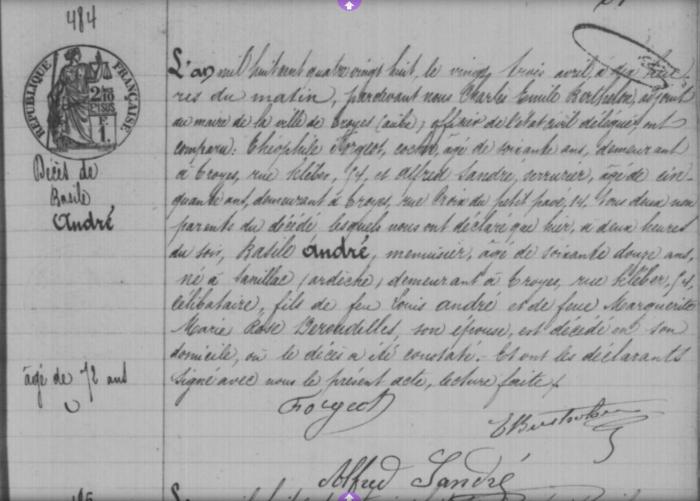 484
RÉPUBLIQUE FRANÇAISE
Décès de
Basile
André
âgé de 72 ans
L'an mil huit cent quatre vingt huit, le vingt trois avril à dix heu-
res du matin, pardevant nous Charles Emile Berthelon, adjoint
au maire de la ville de Troyes (aube), officier de l'état civil délégué, ont
comparu: Théophile Forgeot, cocher, âgé de soixante ans, demeurant
à Troyes, rue Kléber, 74, et alfred Sandré, serrurier, âgé de cin-
quante ans, demeurant à Troyes, rue Croix du petit pavé, 14. Tous deux non
parents du décédé, lesquels nous ont déclaré que hier, à deux heures
du soir, Basile André, menuisier, âgé de soixante douze ans,
né à (ardèche) demeurant à Troyes, rue Kléber, 74,
célibataire, fils de feu Louis andré et de feue Marguerite
Marie Rose, son épouse, est décédé en son
domicile, où le décès a été constaté. Et ont les déclarants
signé avec nous le présent acte, lecture faite.
Forgeot
Alfred Sandré